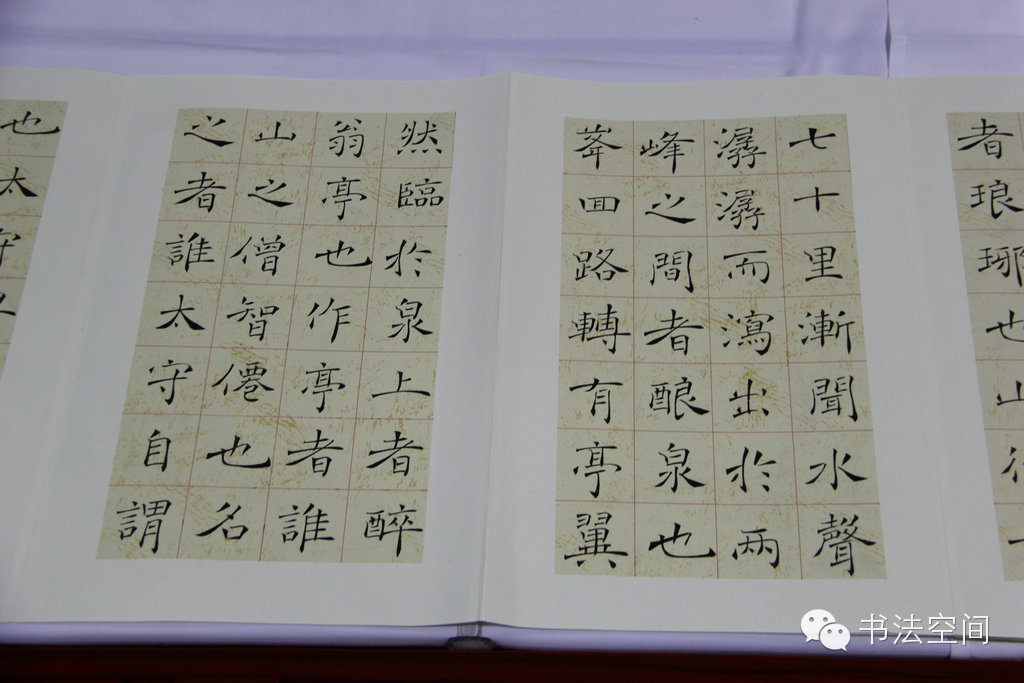 者琅琊也山
七十里漸聞水聲
潺潺而瀉出於兩
峰之間者酿泉也
峯囬路轉有亭翼
然臨於泉上者醉
翁亭也作亭者誰
山之僧智僊也名
之者誰太守自謂
也太守
书法空间